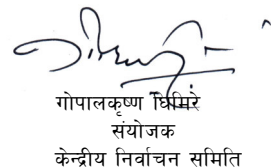 गोपालकृष्ण घिमिरे
संयोजक
केन्द्रीय निर्वाचन समिति